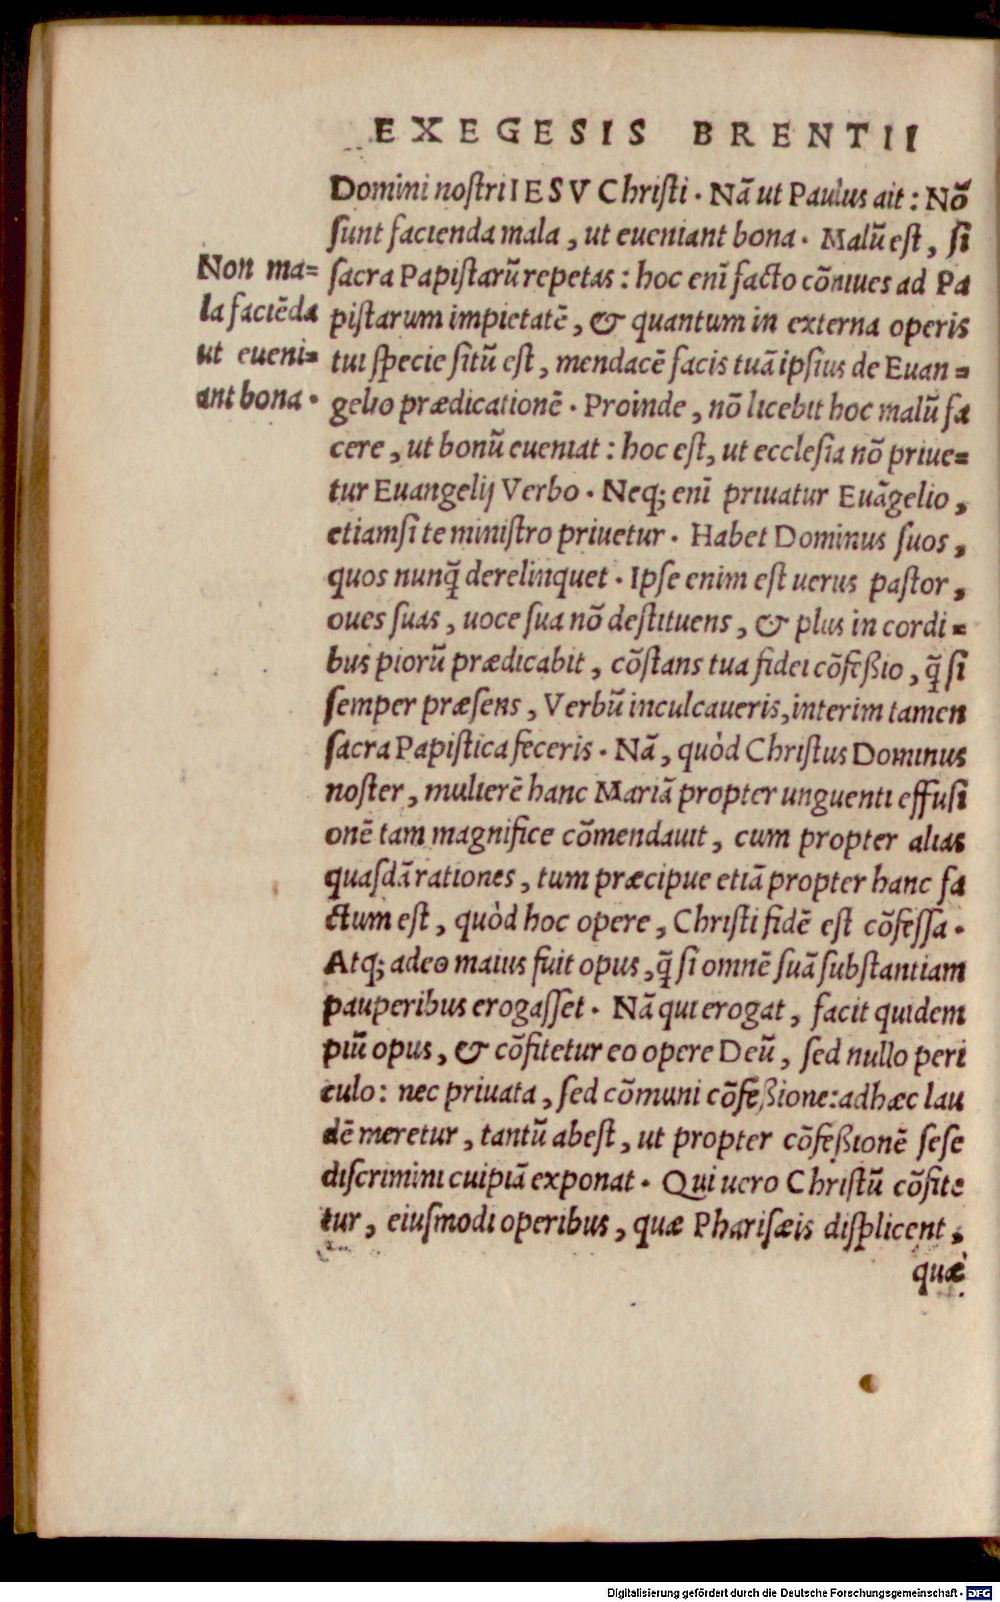 EXEGESIS BRENTII
Domini noſtri IESV Chriſti. Nã ut Paulus ait: Nõ
ſunt facienda mala, ut eueniant bona. Malũ eſt, ſi
ſacra Papiſtarũ repetas: hoc enĩ facto cõniues ad Pa
piſtarum impietatẽ, & quantum in externa operis
tui ſpecie ſitũ eſt, mendacẽ facis tuã ipſius de Euan=
gelio prædicationẽ. Proinde, nõ licebit hoc malũ fa
cere, ut bonũ eueniat: hoc eſt, ut eccleſia nõ priue=
tur Euangelij Verbo. Neq; enĩ priuatur Euãgelio,
etiamſi te miniſtro priuetur. Habet Dominus ſuos,
quos nunq̃ derelinquet. Ipſe enim eſt uerus paſtor,
oues ſuas, uoce ſua nõ deſtituens, & plus in cordi=
bus piorũ prædicabit, cõſtans tua fidei cõfeßio, q̃ ſi
ſemper præſens, Verbũ inculcaueris, interim tamen
ſacra Papiſtica feceris. Nã, quòd Chriſtus Dominus
noſter, mulierẽ hanc Mariã propter unguenti effuſi
onẽ tam magnifice cõmendauit, cum propter alias
quaſdã rationes, tum præcipue etiã propter hanc fa
ctum eſt, quòd hoc opere, Chriſti fidẽ eſt cõfeſſa.
Atq; adeo maius fuit opus, q̃ ſi omnẽ ſuã ſubſtantiam
pauperibus erogaſſet. Nã qui erogat, facit quidem
piũ opus, & cõfitetur eo opere Deũ, ſed nullo peri
culo: nec priuata, ſed cõmuni cõfeßione: adhæc lau
dẽ meretur, tantũ abeſt, ut propter cõfeßionẽ ſeſe
diſcrimini cuipiã exponat. Qui uero Chriſtũ cõfite
tur, eiuſmodi operibus, quæ Phariſæis diſplicent,
quæ
Non ma=
la faciẽda
ut eueni=
ant bona.
Digitalisierung gefördert durch die Deutsche Forschungsgemeinschaft - DFG